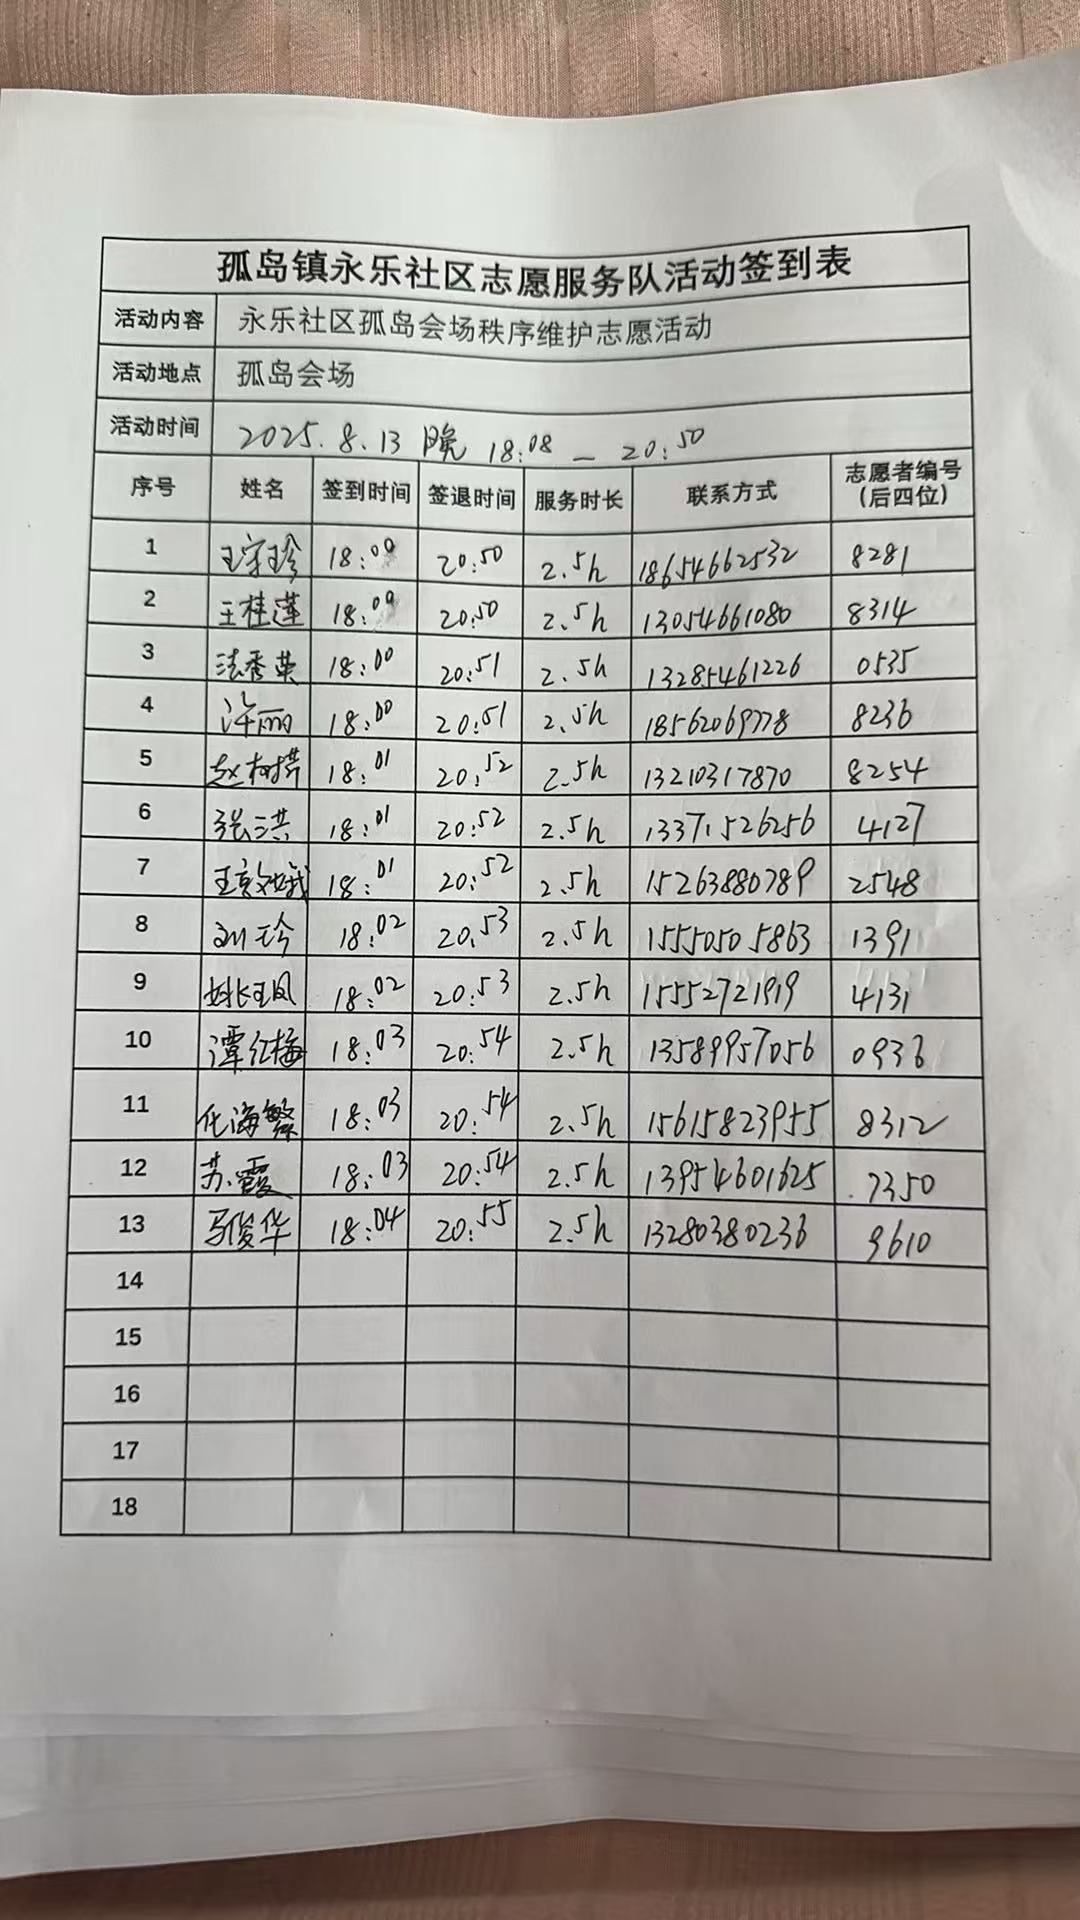 孤岛镇永乐社区志愿服务队活动签到表
活动内容 永乐社区孤岛会场秩序维护志愿活动
活动地点 孤岛会场
活动时间 2025.8.13 晚 18:08 — 20:50
序号 姓名 签到时间 签退时间 服务时长 联系方式 志愿者编号(后四位)
1 王守珍 18:00 20:50 2.5h 18654662532 8281
2 王桂莲 18:00 20:50 2.5h 13054661080 8314
3 法秀英 18:00 20:51 2.5h 13285461226 0535
4 许丽 18:00 20:51 2.5h 18562069778 8236
5 赵树 18:01 20:52 2.5h 13210317870 8254
6 张三洪 18:01 20:52 2.5h 13371526256 4127
7 王 18:01 20:52 2.5h 15263880789 2548
8 刘珍 18:02 20:53 2.5h 15550505863 1391
9 姚长凤 18:02 20:53 2.5h 15552721919 4131
10 谭红梅 18:03 20:54 2.5h 13589957056 0936
11 化海繁 18:03 20:54 2.5h 15615823955 8312
12 苏霞 18:03 20:54 2.5h 13954601625 7350
13 马俊华 18:04 20:55 2.5h 13280380236 9610
14
15
16
17
18